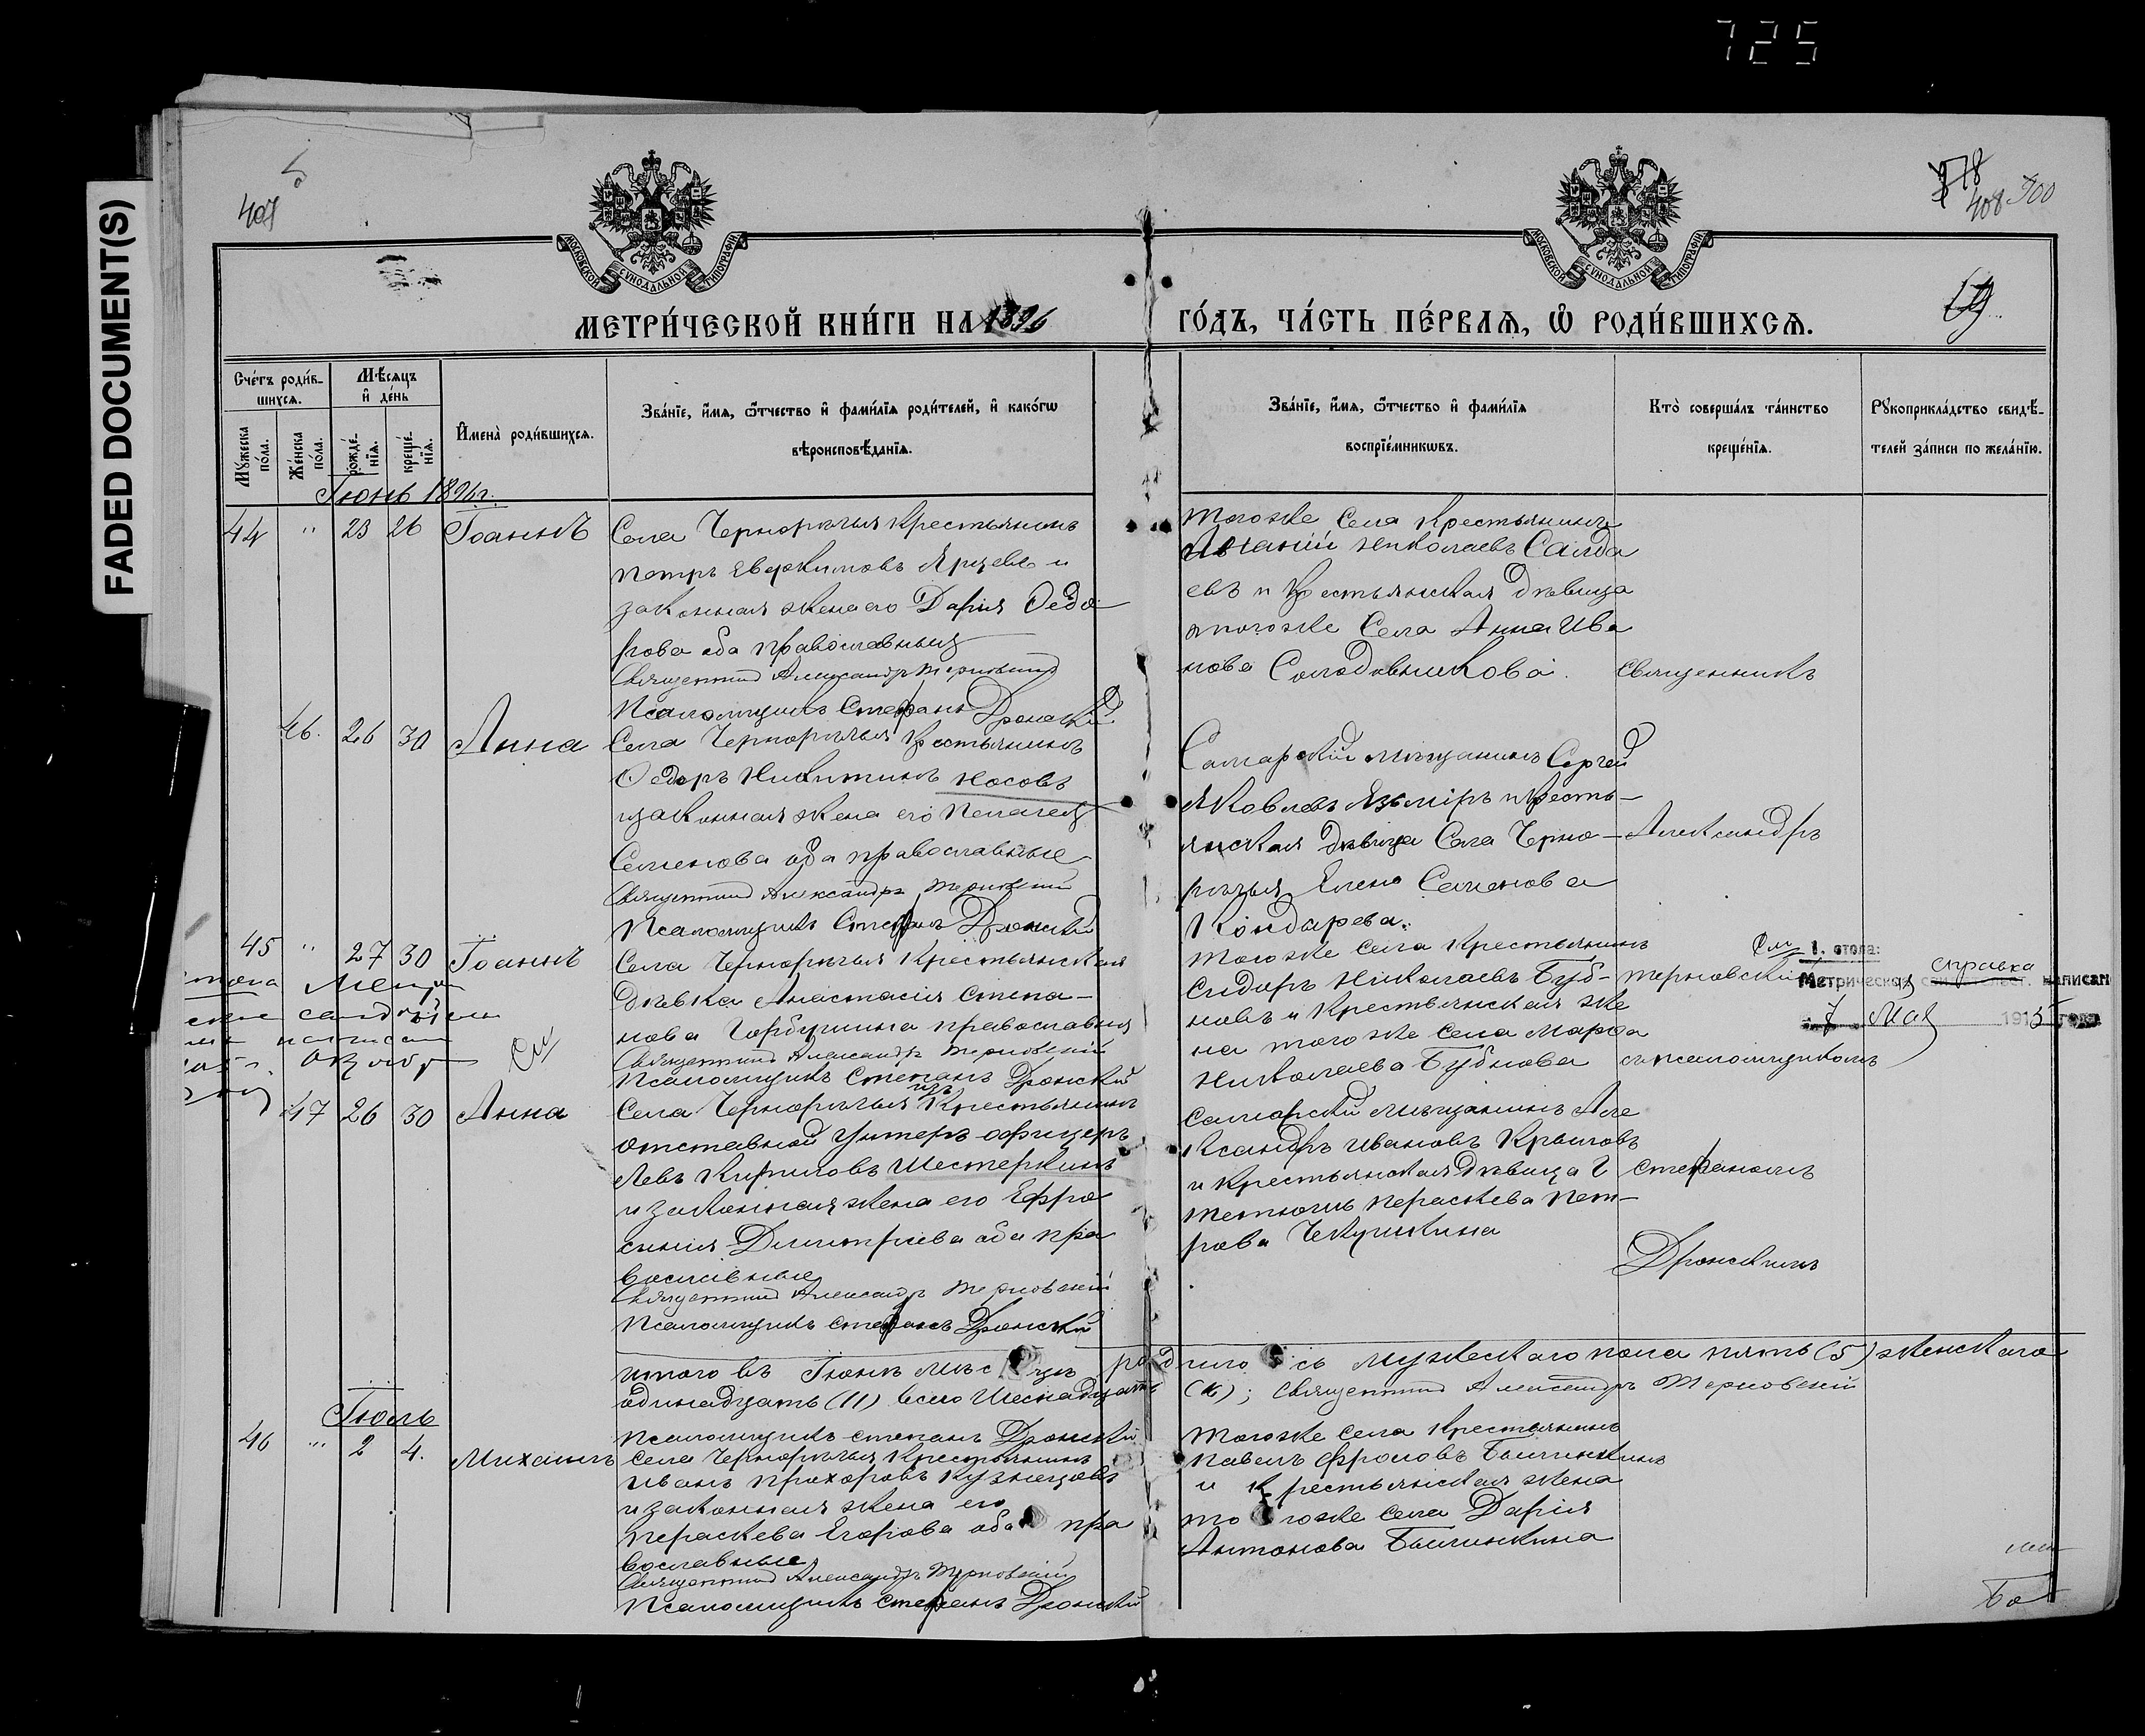 725
FADED DOCUMENT(S)
407
408
МОСКОВСКОЙ СѴНОДАЛЬНОЙ ТИПОГРАФІИ
МОСКОВСКОЙ СѴНОДАЛЬНОЙ ТИПОГРАФІИ
19
МЕТРИ́ЧЕСКОЙ КНИ́ГИ НА 1896 ГО́ДЪ, ЧА́СТЬ ПЕ́РВАѦ, Ѽ РОДИ́ВШИХСѦ.
Сче́тъ роди́в-
шихсѧ.
Мѣ́сѧцъ
и҆ де́нь
Мꙋ́жеска по́ла.
Же́нска по́ла.
рожде́-нїѧ.
креще́-нїѧ.
И҆мена̀ роди́вшихсѧ.
Зва́нїе, и҆́мѧ, ѻ҆́тчество и҆ фами́лїѧ роди́телей, и҆ како́гѡ
вѣроисповѣ́данїѧ.
Зва́нїе, и҆́мѧ, ѻ҆́тчество и҆ фами́лїѧ
воспрїе́мникѡвъ.
Кто̀ соверша́лъ та́инство
креще́нїѧ.
Рꙋкоприкла́дство свидѣ́-
телей за́писи по жела́нїю.
Іюнь 1896 г.
44 " 23 26 Іоаннъ
Села Чернорѣчья Крестьянинъ
Петръ Евдокимовъ Ярцевъ и
законная жена его Дарія Ѳедо
рова оба православныя
Священникъ Александръ Терновскій
Псаломщикъ Стефанъ Дронскій
тогоже Села Крестьянинъ
Николаевъ Салда
евъ и Крестьянская дѣвица
тогоже Села Анна Ива
нова Солодовникова.
Священникъ
46. 26 30 Анна
Села Чернорѣчья Крестьянинъ
Ѳедоръ Никитинъ Носовъ
и законная жена его Пелагея
Семенова оба православные
Священникъ Александръ Терновскій
Псаломщикъ Стефанъ Дронскій
Самарскій мѣщанинъ Сергей
Яковлевъ и Кресть-
янская дѣвица Села Черно-
рѣчья Елена Семенова
Кондарева.
Александръ
45 " 27 30 Іоаннъ
Села Чернорѣчья Крестьянская
дѣвка Анастасія Степа-
нова Горбушина православная
Священникъ Александръ Терновскій
Псаломщикъ Степанъ Дронскій
тогоже села Крестьянинъ
Сидоръ Николаевъ Буб-
новъ и Крестьянская же
на тогоже села Марѳа
Николаева Бубнова
Терновскій
съ псаломщикомъ
1. стола:
Метрическая справка написан
7 Мая 1915 года
47 26 30 Анна
Села Чернорѣчья изъ Крестьянинъ
отставной унтеръ-офицеръ
Левъ Кириловъ Шестеркинъ
и законная жена его Ефро
синія Димитріева оба пра
вославные
Священникъ Александръ Терновскій
Псаломщикъ Стефанъ Дронскій
Самарскій мѣщанинъ Але
ксандръ Ивановъ Крыловъ
и крестьянская дѣвица
Параскева Пет-
рова Чекушкина
Стефаномъ
Дронскимъ
итого въ Іюнѣ мѣсяцѣ родилось мужескаго пола пять (5) женскаго
одинадцать (11) всего шеснадцать ; Священникъ Александръ Терновскій
Псаломщикъ Степанъ Дронскій
Іюль
46 " 2 4. Михаилъ
Села Чернорѣчья Крестьянинъ
Иванъ Прохоровъ Кузнецовъ
и законная жена его
Параскева Егорова оба пра
вославные
Священникъ Александръ Терновскій
Псаломщикъ Стефанъ Дронскій
тогоже села Крестьянинъ
Павелъ Фроловъ
и крестьянская жена
тогоже села Дарія
Антонова